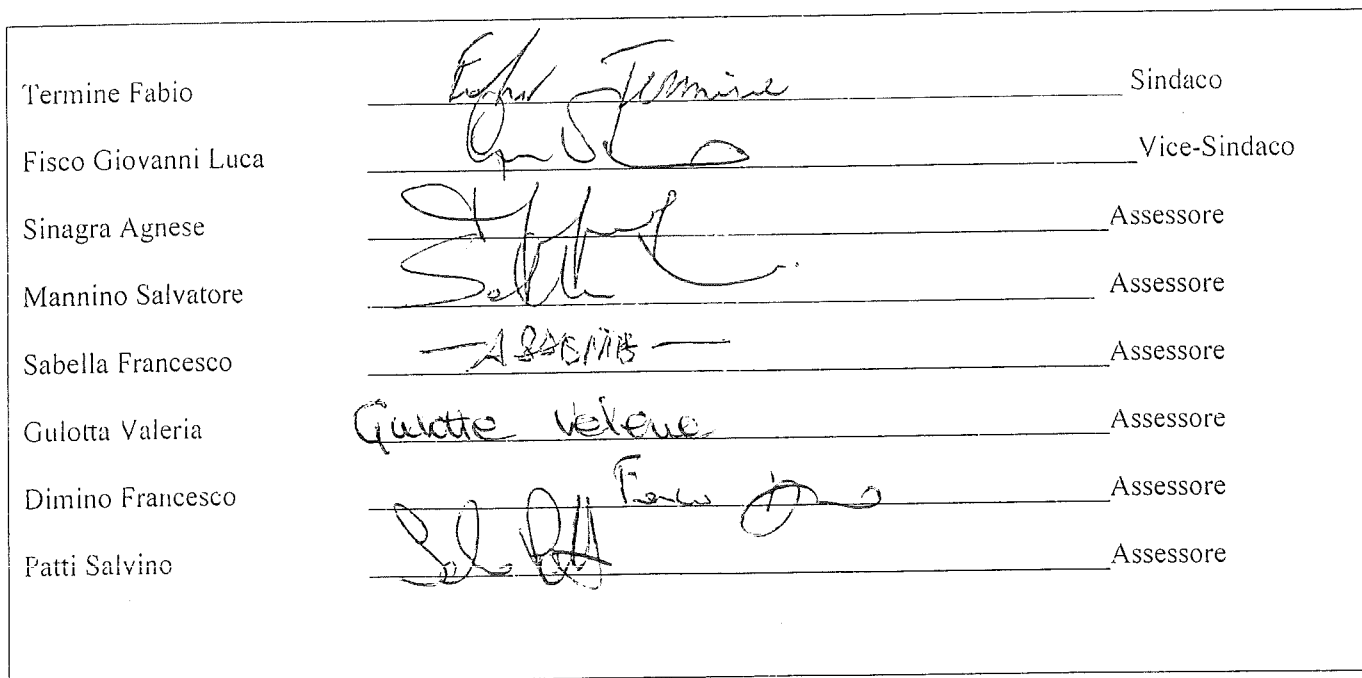 Termine Fabio Termine Sindaco
Fisco Giovanni Luca Vice-Sindaco
Sinagra Agnese Assessore
Mannino Salvatore Assessore
Sabella Francesco Assessore
Gulotta Valeria Gulotta Valeria Assessore
Dimino Francesco Assessore
Patti Salvino Assessore